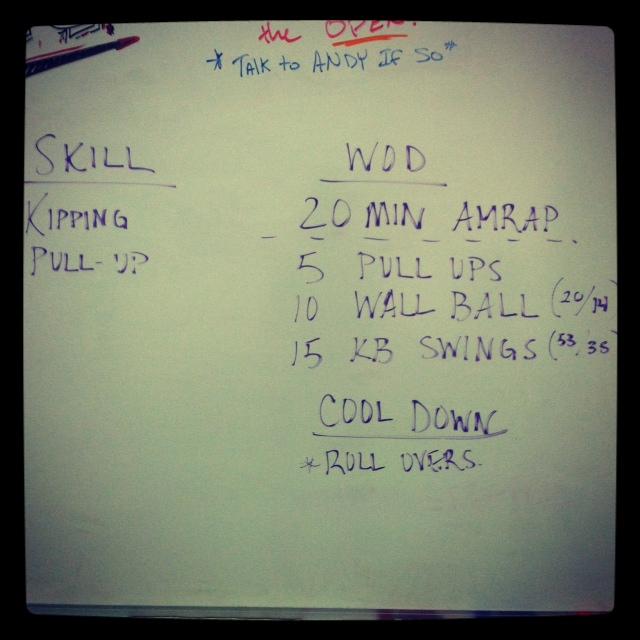 the OPEN!
* TALK to ANDY IF SO *
SKILL
KIPPING
PULL-UP
WOD
20 MIN AMRAP
5 PULL UPS
10 WALL BALL (20/14)
15 KB SWINGS (53/35
COOL DOWN
* ROLL OVERS.